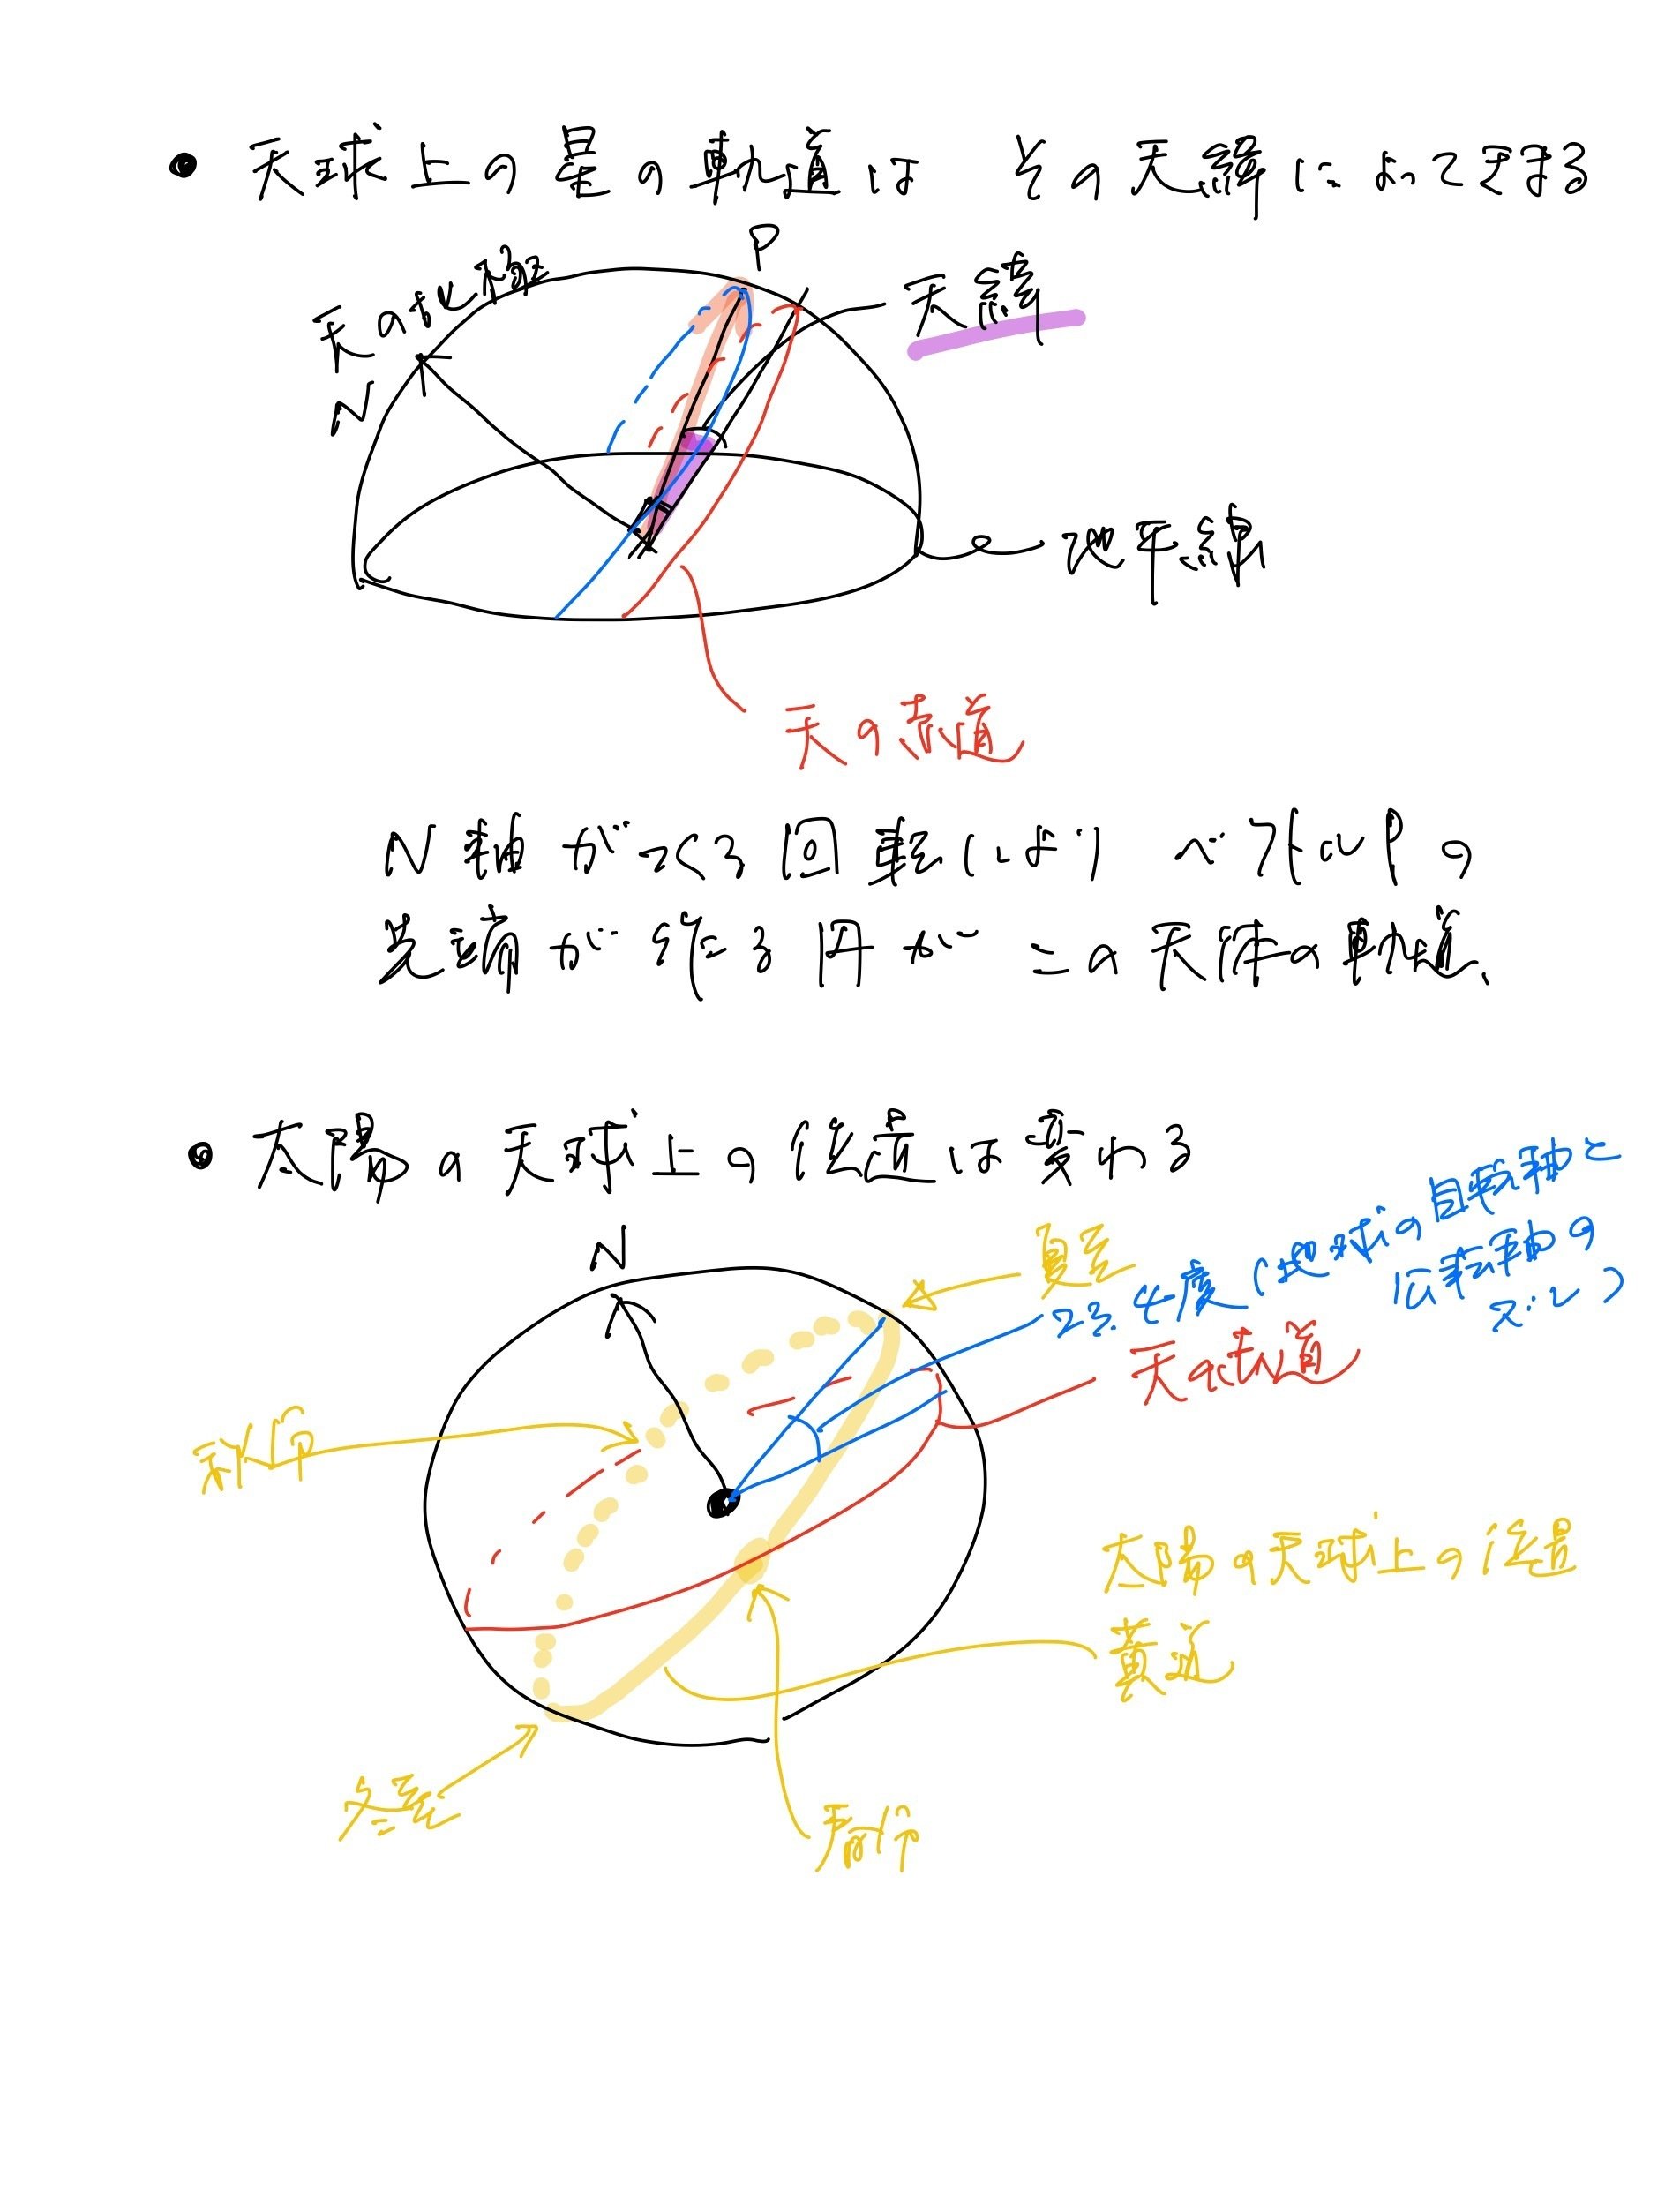 • 天球上の星の軌道は その天緯によってきまる
P
天の北極
天緯
N
地平線
天の赤道
N軸がつくる回転により ベクトルPの
先端が作る円が この天体の軌道、
• 太陽の天球上の位置は変わる
N
夏至
23.4度(地球の自転軸と
公転軸の
ズレ)
天の赤道
秋分
太陽の天球上の位置
黄道
冬至
春分